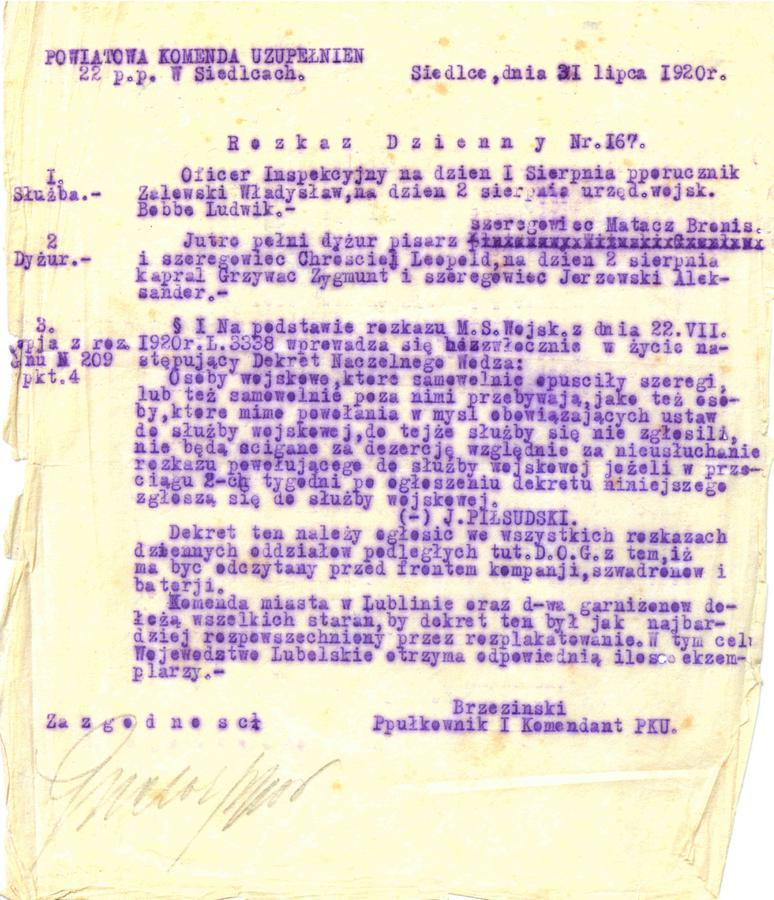 POWIATOWA KOMENDA UZUPEŁNIEN
22 p.p. W Siedlcach.
Siedlce,dnia 31 lipca 1920r.
Rozkaz Dzienny Nr.I67.
I.
Służba.-
Oficer Inspekcyjny na dzien I Sierpnia pporucznik
Zalewski Władysław,na dzien 2 sierpnia urzęd.wojsk.
Bobbe Ludwik.-
szeregowiec Matacz Bronis.
2
Dyżur.-
Jutro pełni dyżur pisarz
i szeregowiec Chrościej Leopold,na dzien 2 sierpnia
kapral Grzywac Zygmunt i szeregowiec Jerzewski Alek-
sander.-
3.
pja z roz.
dnu N 209
pkt.4
§ I Na podstawie rozkazu M.S.Wojsk.z dnia 22.VII.
1920r.L.3338 wprowadza się bezzwłocznie w życie na-
stępujący Dekret Naczelnego Wodza:
Osoby wojskowe,ktore samowolnie opusciły szeregi,
lub też samowolnie poza nimi przebywają,jako też oso-
by,ktore mimo powołania w mysl obowiązających ustaw
do służby wojskowej,do tejże służby się nie zgłosili,
nie będą scigane za dezercję względnie za nieusłuchanie
rozkazu powołującego do służby wojskowej jeżeli w prze-
ciągu 2-ch tygodni po ogłoszeniu dekretu niniejszego
zgłoszą się do służby wojskowej.
(-) J.PIŁSUDSKI.
Dekret ten należy ogłosic we wszystkich rozkazach
dziennych oddziałow podległych tut.D.O.G.z tem,iż
ma byc odczytany przed frontem kompanji,szwadronow i
baterji.
Komenda miasta w Lublinie oraz d-wa garnizonow do-
łożą wszelkich staran,by dekret ten był jak najbar-
dziej rozpowszechniony przez rozplakatowanie.W tym celu
Wojewodztwo Lubelskie otrzyma odpowiednią ilosc ekzem-
plarzy.-
Za zgodnoscł
Brzezinski
Ppułkownik I Komendant PKU.